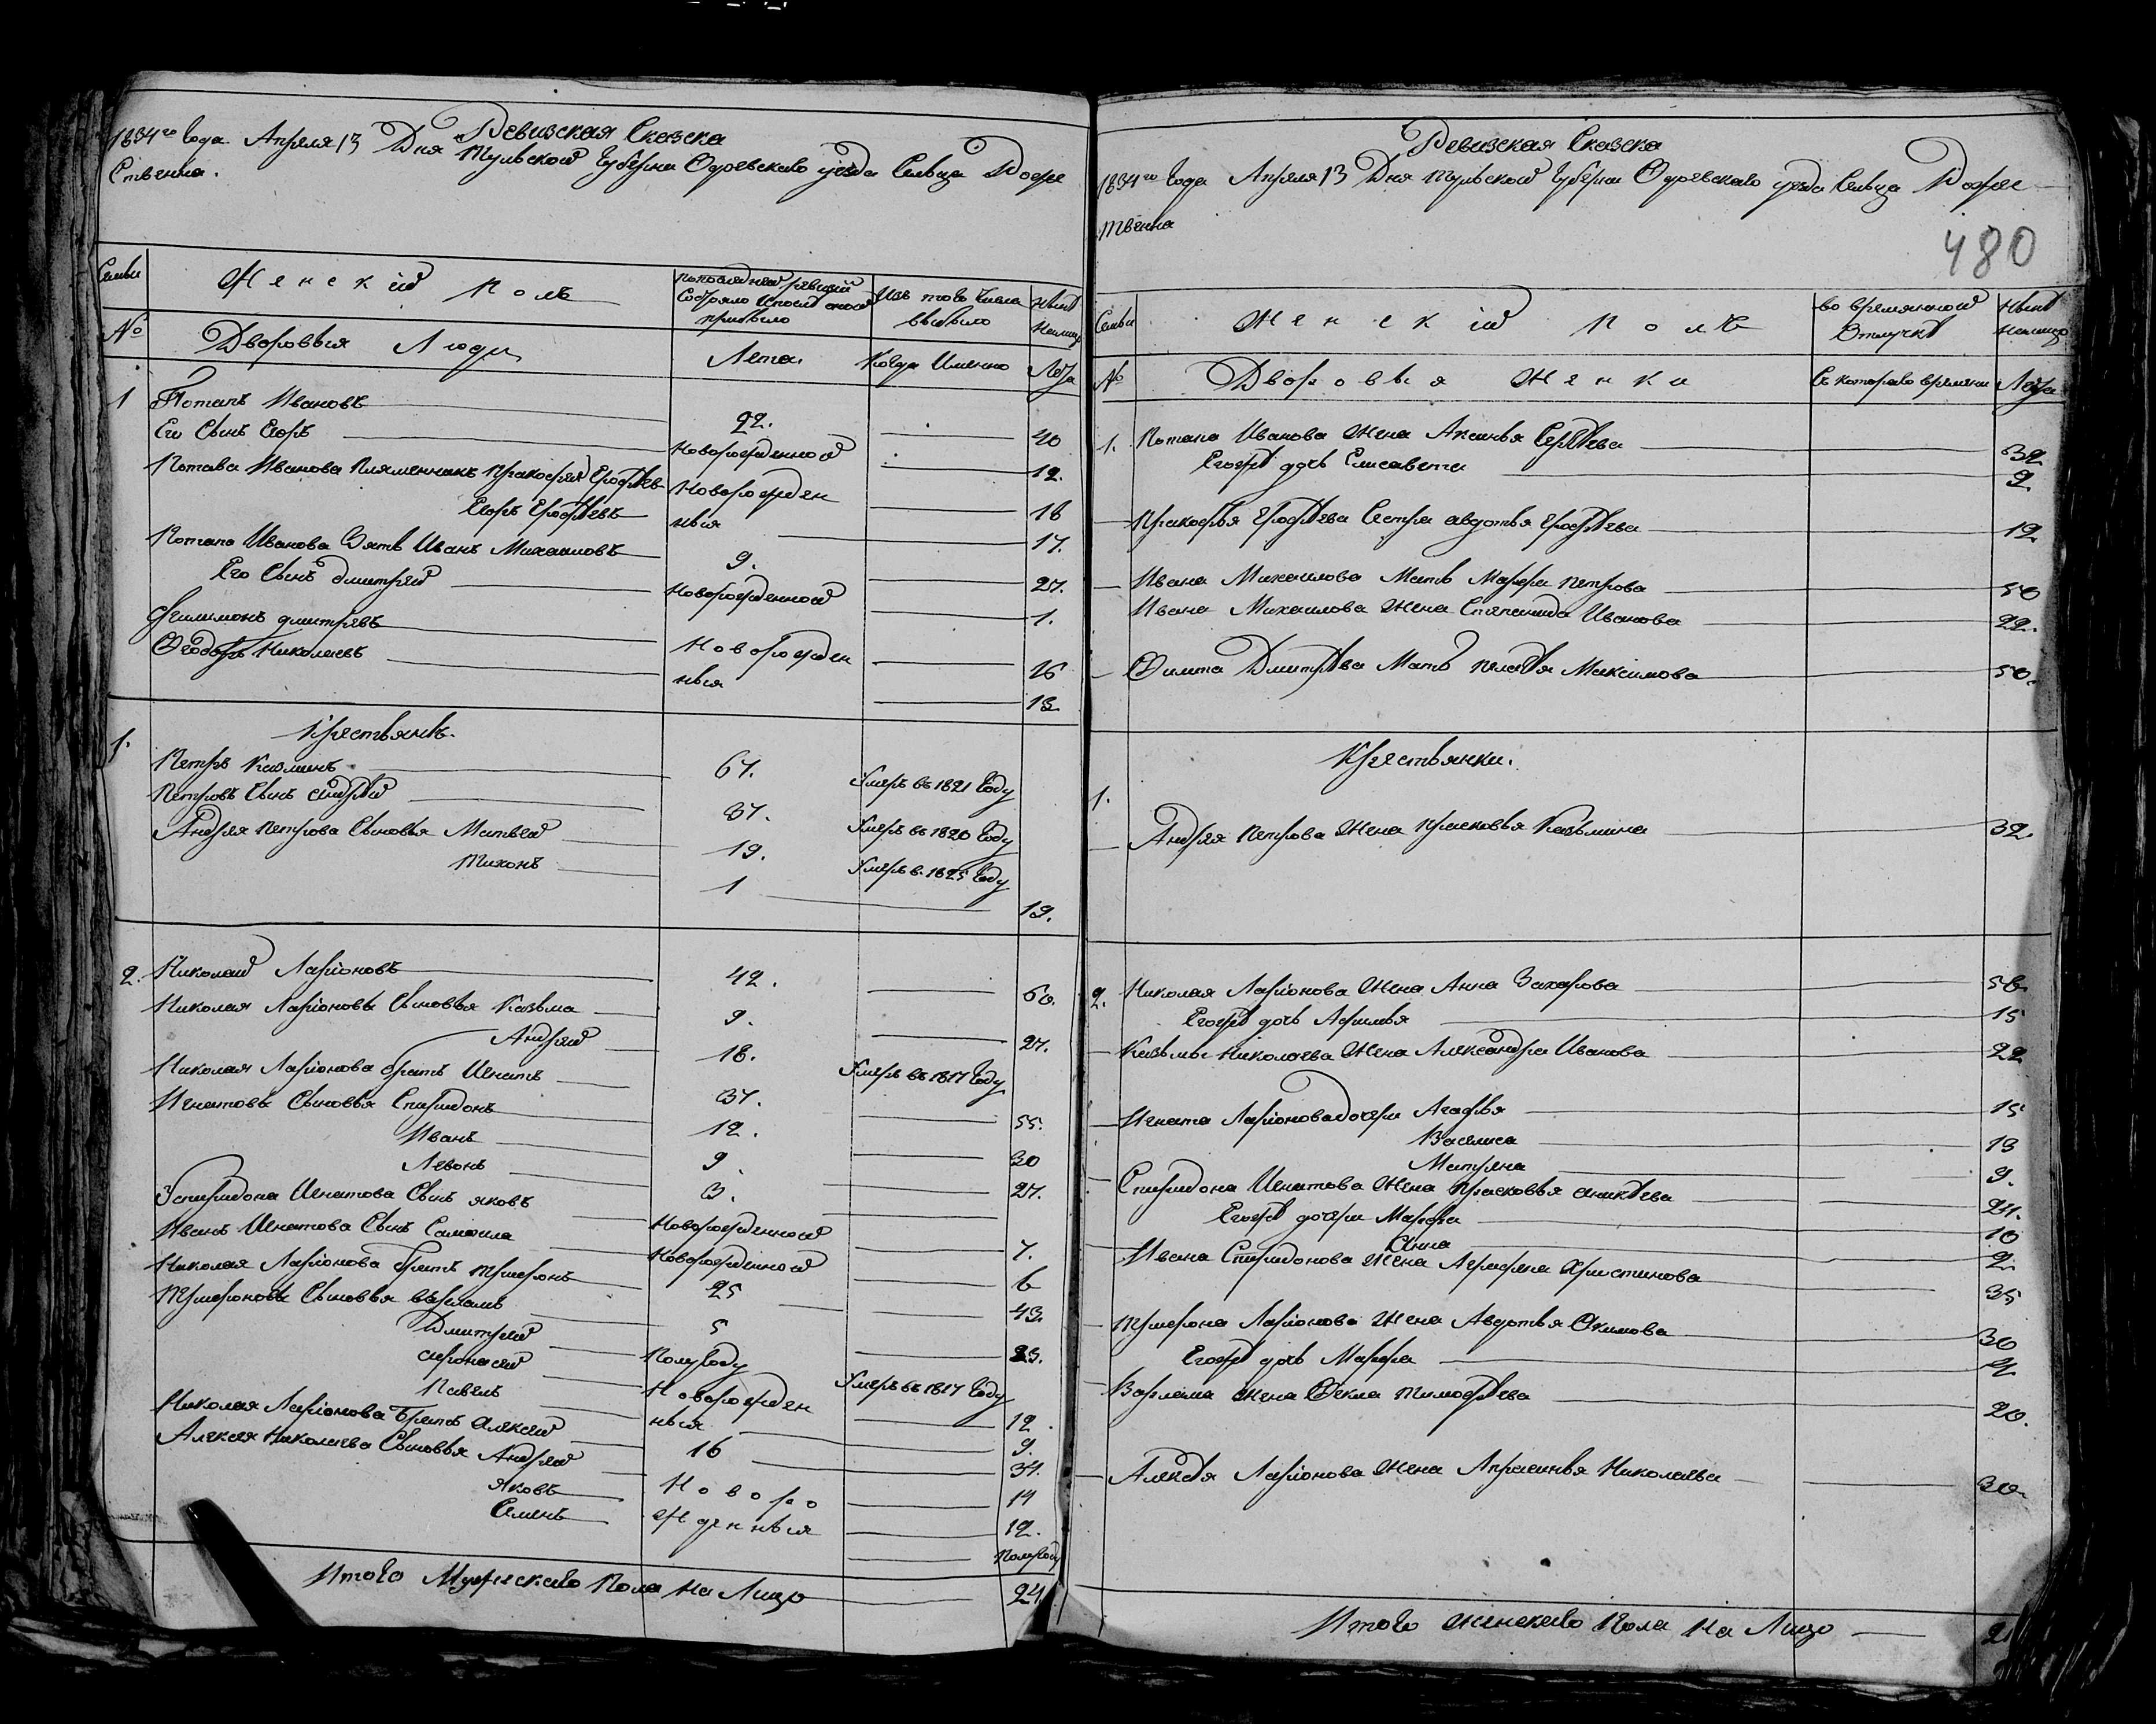 Ревизская Сказска
1834го Года Апреля 13 Дня Тульской Губерни Одоевскаго уезда Сельца Рожде
Ственна.
Семьи
Женскій Полъ
Изъ того числа
выбыло
Ныне
Налицо
№
Дворовыя Люди
Лета.
Когда Именно
Лета
1
Потапъ Ивановъ
22.
40
Его Сынъ Егоръ
Новорожденной
12.
Потапа Иванова Племянникъ Ерофеев
Новорожден
18
Егоръ Ерофеевъ
ныя
17.
Потапа Иванова Зять Иванъ Михаиловъ
9.
27.
Его Сынъ дмитрей
Новорожденной
1.
Филимонъ дмитревъ
Новорожден
16
Федоръ Николаевъ
ныя
13
Крестьянъ.
1.
Петръ Казминъ
67.
Умеръ въ 1821 Году
Петровъ Сынъ андрей
37.
Умеръ въ 1820 Году
Андрея Петрова Сыновья Матвей
19.
Умеръ в. 1825 Году
Тихонъ
1
19.
2.
Николай Ларіоновъ
42.
60.
Николая Ларіонова Сыновья Казьма
9.
27.
Андрей
18.
Умеръ въ 1817 Году
Николая Ларіонова братъ Игнатъ
37.
55.
Игнатовы Сыновья Спиридонъ
12.
30
Иванъ
9
27.
Левонъ
3.
Спиридона Игнатова Сынъ яковъ
Новорожденной
7.
Иванъ Игнатова Сынъ Самоила
Новорожденной
6
Николая Ларіонова братъ Трифонъ
25
43.
Трифоновы Сыновья варламъ
5
23.
Дмитрей
Полугоду
Умеръ въ 1817 Году
афонасей
Новорожден
12.
Павелъ
ныя
9.
Николая Ларіонова братъ алексей
16
34.
Алексея Николаева Сыновья Андрей
Новоро
14
Яковъ
жденныя
12.
Семенъ
Полугоду
Итого Мужескаго Пола На Лицо
24
Ревизская Сказска
1834го Года Апреля 13 Дня Тульской Губерни Одоевскаго уезда Сельца Рожде
ственна
480
Семьи
Женскій Полъ
во временной
Отлучке
Ныне
Налицо
№
Дворовыя Женки
Съ котораго времени
Лета
1.
Потапа Иванова Жена Аксинья Сергеева
32
Егожъ дочь Елисавета
9.
Прокофья Ерофеева Сестра авдотья Ерофеева
12
Ивана Михаилова Мать Марфа Петрова
50
Ивана Михаилова Жена Степанида Иванова
22.
Дмитрева Мать Пелагея Максимова
50.
Крестьянки.
1.
Андрея Петрова Жена Прасковья Казьмина
32.
2.
Николая Ларіонова Жена Анна Захарова
56
Егожъ дочь Афимья
15
Казьмы Николаева Жена Александра Иванова
22
Игната Ларіонова дочери Агафья
15
Василиса
13
Матрена
9.
Спиридона Игнатова Жена Прасковья аникеева
24.
Егожъ дочери Марфа
10
Анна
2.
Ивана Спиридонова Жена Аграфена Христинова
35
Трифона Ларіонова Жена Авдотья Акимова
30
Егожъ дочь Марфа
Варлама Жена Фекла Тимофеева
20.
Алексея Ларіонова Жена Апраксинья Николаева
30
Итого Женскаго Пола На Лицо